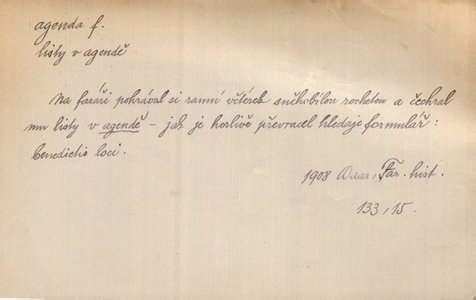 agenda f.
listy v agendě
Na faráři pohrával si ranní větérek sněhobílou rochetou a čechral
mu listy v agendě – jak je horlivě převracel hledaje formulář:
benedictio loci.
1908 Baar, Far. hist.
133, 15.